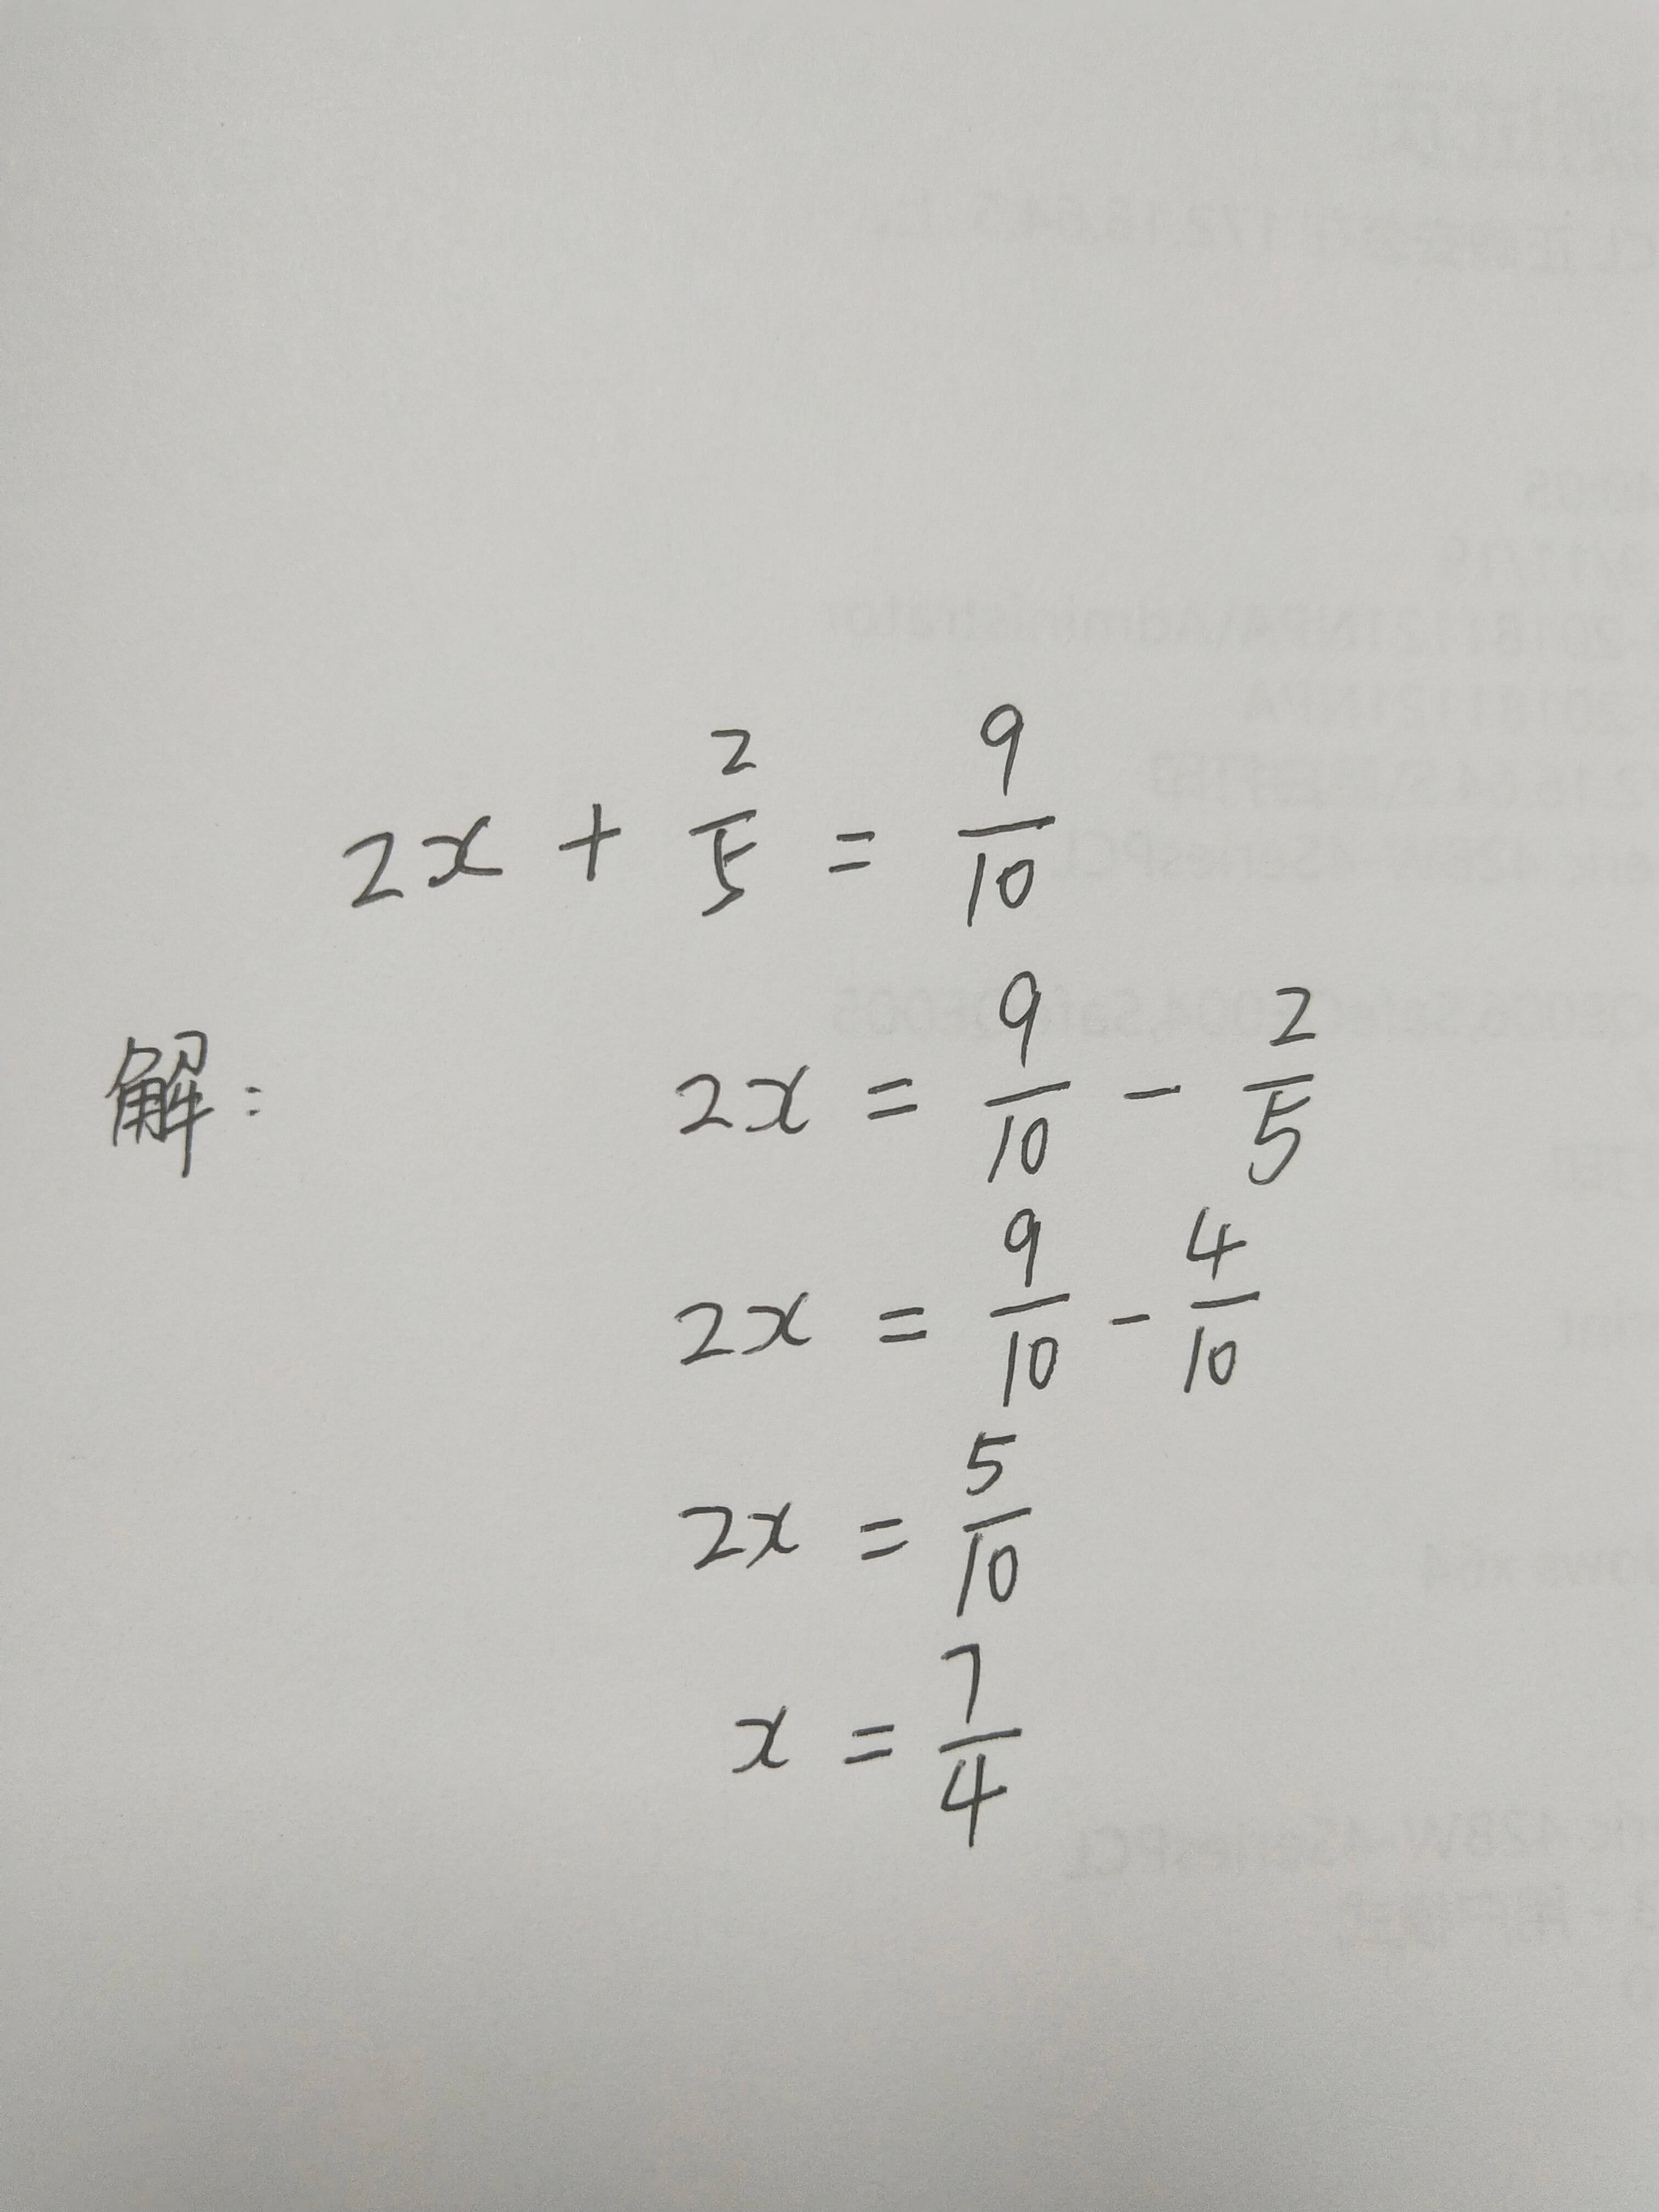 2x + 2/5 = 9/10
解: 2x = 9/10 - 2/5
2x = 9/10 - 4/10
2x = 5/10
x = 7/4